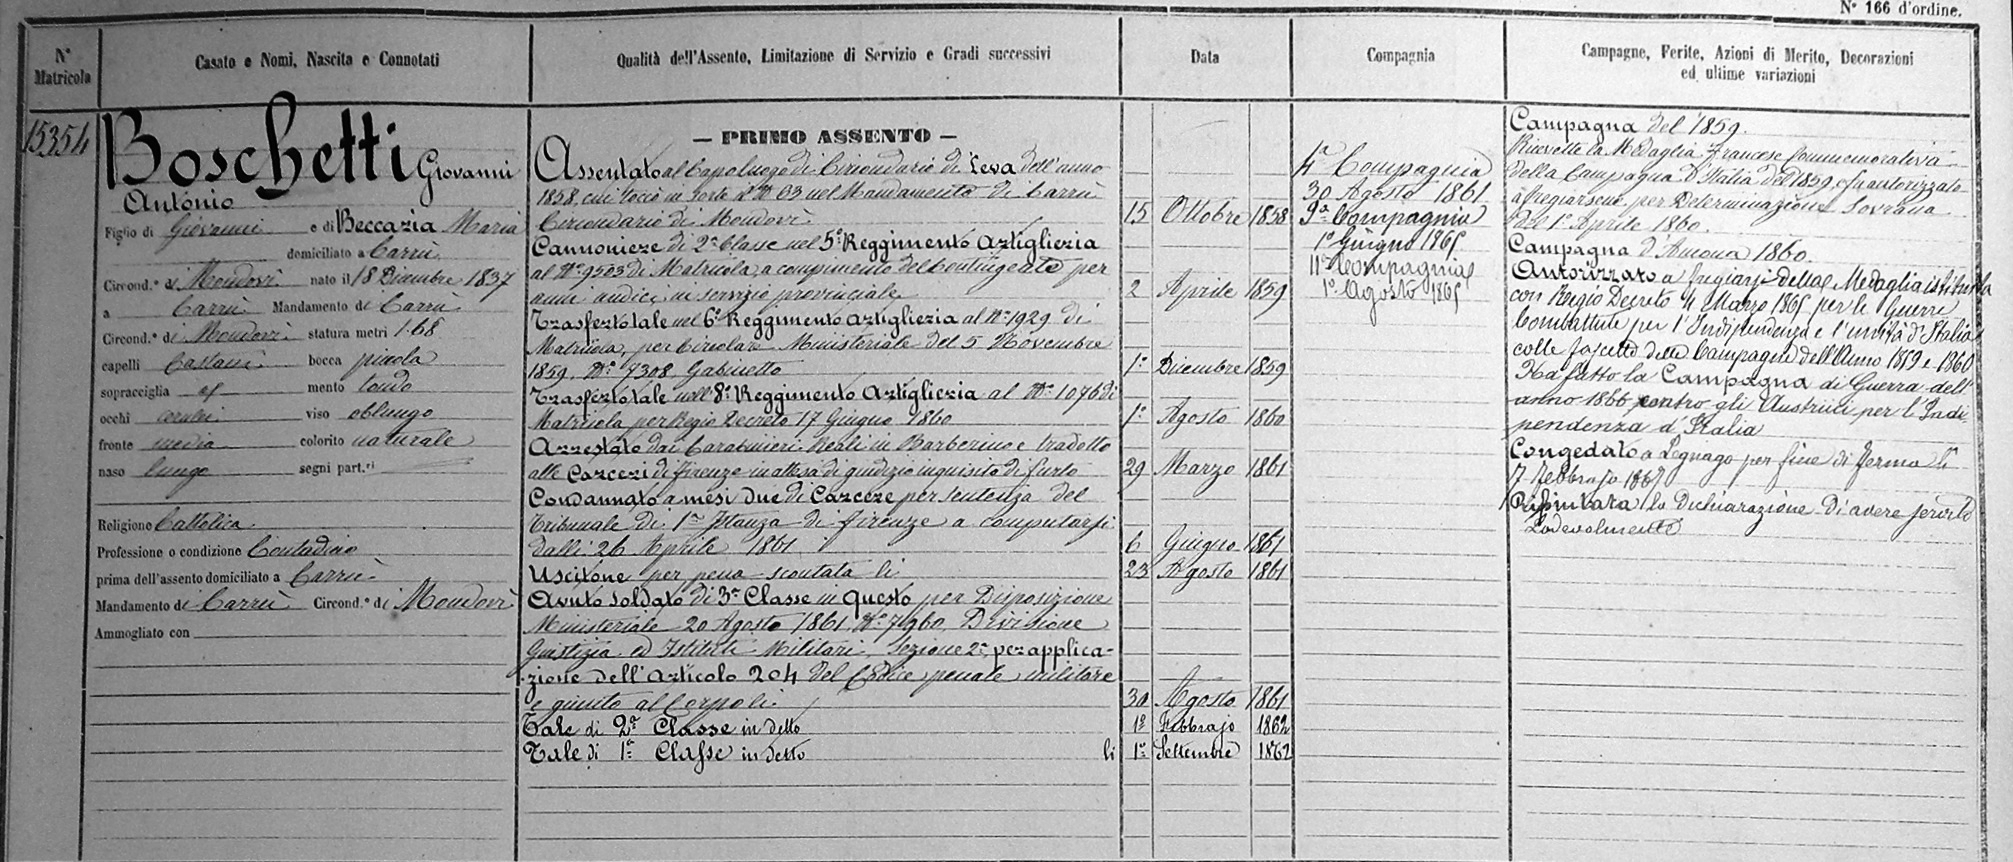 N° 166 d'ordine.
N° Matricola
Casato e Nomi, Nascita e Connotati
Qualità dell'Assento, Limitazione di Servizio e Gradi successivi
Data
Compagnia
Campagne, Ferite, Azioni di Merito, Decorazioni
ed ultime variazioni
15354
Boschetti Giovanni
Antonio
Figlio di Giovanni e di Beccazia Maria
domiciliato a Carrù
Circond.° di Mondovì nato il 18 Dicembre 1837
a Carrù Mandamento di Carrù
Circond.° di Mondovì statura metri 1.68
capelli Castani bocca picola
sopracciglia id mento tondo
occhi cerulei viso oblungo
fronte media colorito naturale
naso lungo segni part.ri
Religione Cattolica
Professione o condizione Contadino
prima dell'assento domiciliato a Carrù
Mandamento di Carrù Circond.° di Mondovì
Ammogliato con
— PRIMO ASSENTO —
Assentato al Capoluogo di Circondario di Leva dell'anno
1858, cui toccò in sorte il N° 63 nel Mandamento di Carrù
Circondario di Mondovì 15 Ottobre 1858
Cannoniere di 2a Classe nel 5° Reggimento Artiglieria
al N° 9503 di Matricola, a compimento del contingente per
anni undici in servizio provinciale 2 Aprile 1859
Trasfertotale nel 6° Reggimento Artiglieria al N° 1929 di
Matricola, per Circolare Ministeriale del 5 Novembre
1859. N° 7308 Gabinetto 1° Dicembre 1859
Trasfertotale nell'8° Reggimento Artiglieria al N° 1076 di
Matricola per Regio Decreto 17 Giugno 1860 1° Agosto 1860
Arrestato dai Carabinieri Reali in Barberino e tradotto
alle Carceri di Firenze in attesa di giudizio inquisito di furto 29 Marzo 1861
Condannato a mesi due di Carcere per sentenza del
Tribunale di 1a Istanza di Firenze a computarsi
dalli 26 Aprile 1861 6 Giugno 1861
Uscitone per pena scontata li 23 Agosto 1861
Avuto soldato di 3a Classe in questo per Disposizione
Ministeriale 20 Agosto 1861 N° 71960, Divisione
Giustizia ed Istituti Militari, Sezione 2a, per applica-
zione dell'Articolo 204 del Codice penale militare
e giunto al Corpo li 30 Agosto 1861
Tale di 2a Classe in detto 1° Febbrajo 1862
Tale di 1a Classe in detto li 1° Settembre 1862
4a Compagnia
30 Agosto 1861
9a Compagnia
1° Giugno 1865
11a Compagnia
1° Agosto 1865
Campagna del 1859.
Ricevette la Medaglia Francese Commemorativa
della Campagna d'Italia del 1859, e fu autorizzato
a fregiarsene per Determinazione Sovrana
del 1° Aprile 1860.
Campagna d'Ancona 1860.
Autorizzato a fregiarsi della Medaglia istituita
con Regio Decreto 4 Marzo 1865 per le Guerre
Combattute per l'Indipendenza e l'unità d'Italia
colle fascette delle Campagne dell'Anno 1859 e 1860
Ha fatto la Campagna di Guerra dell'
anno 1866 contro gli Austriaci per l'Indi-
pendenza d'Italia
Congedato a Legnago per fine di ferma li
7 Febbrajo 1867
la Dichiarazione di avere servito
Lodevolmente